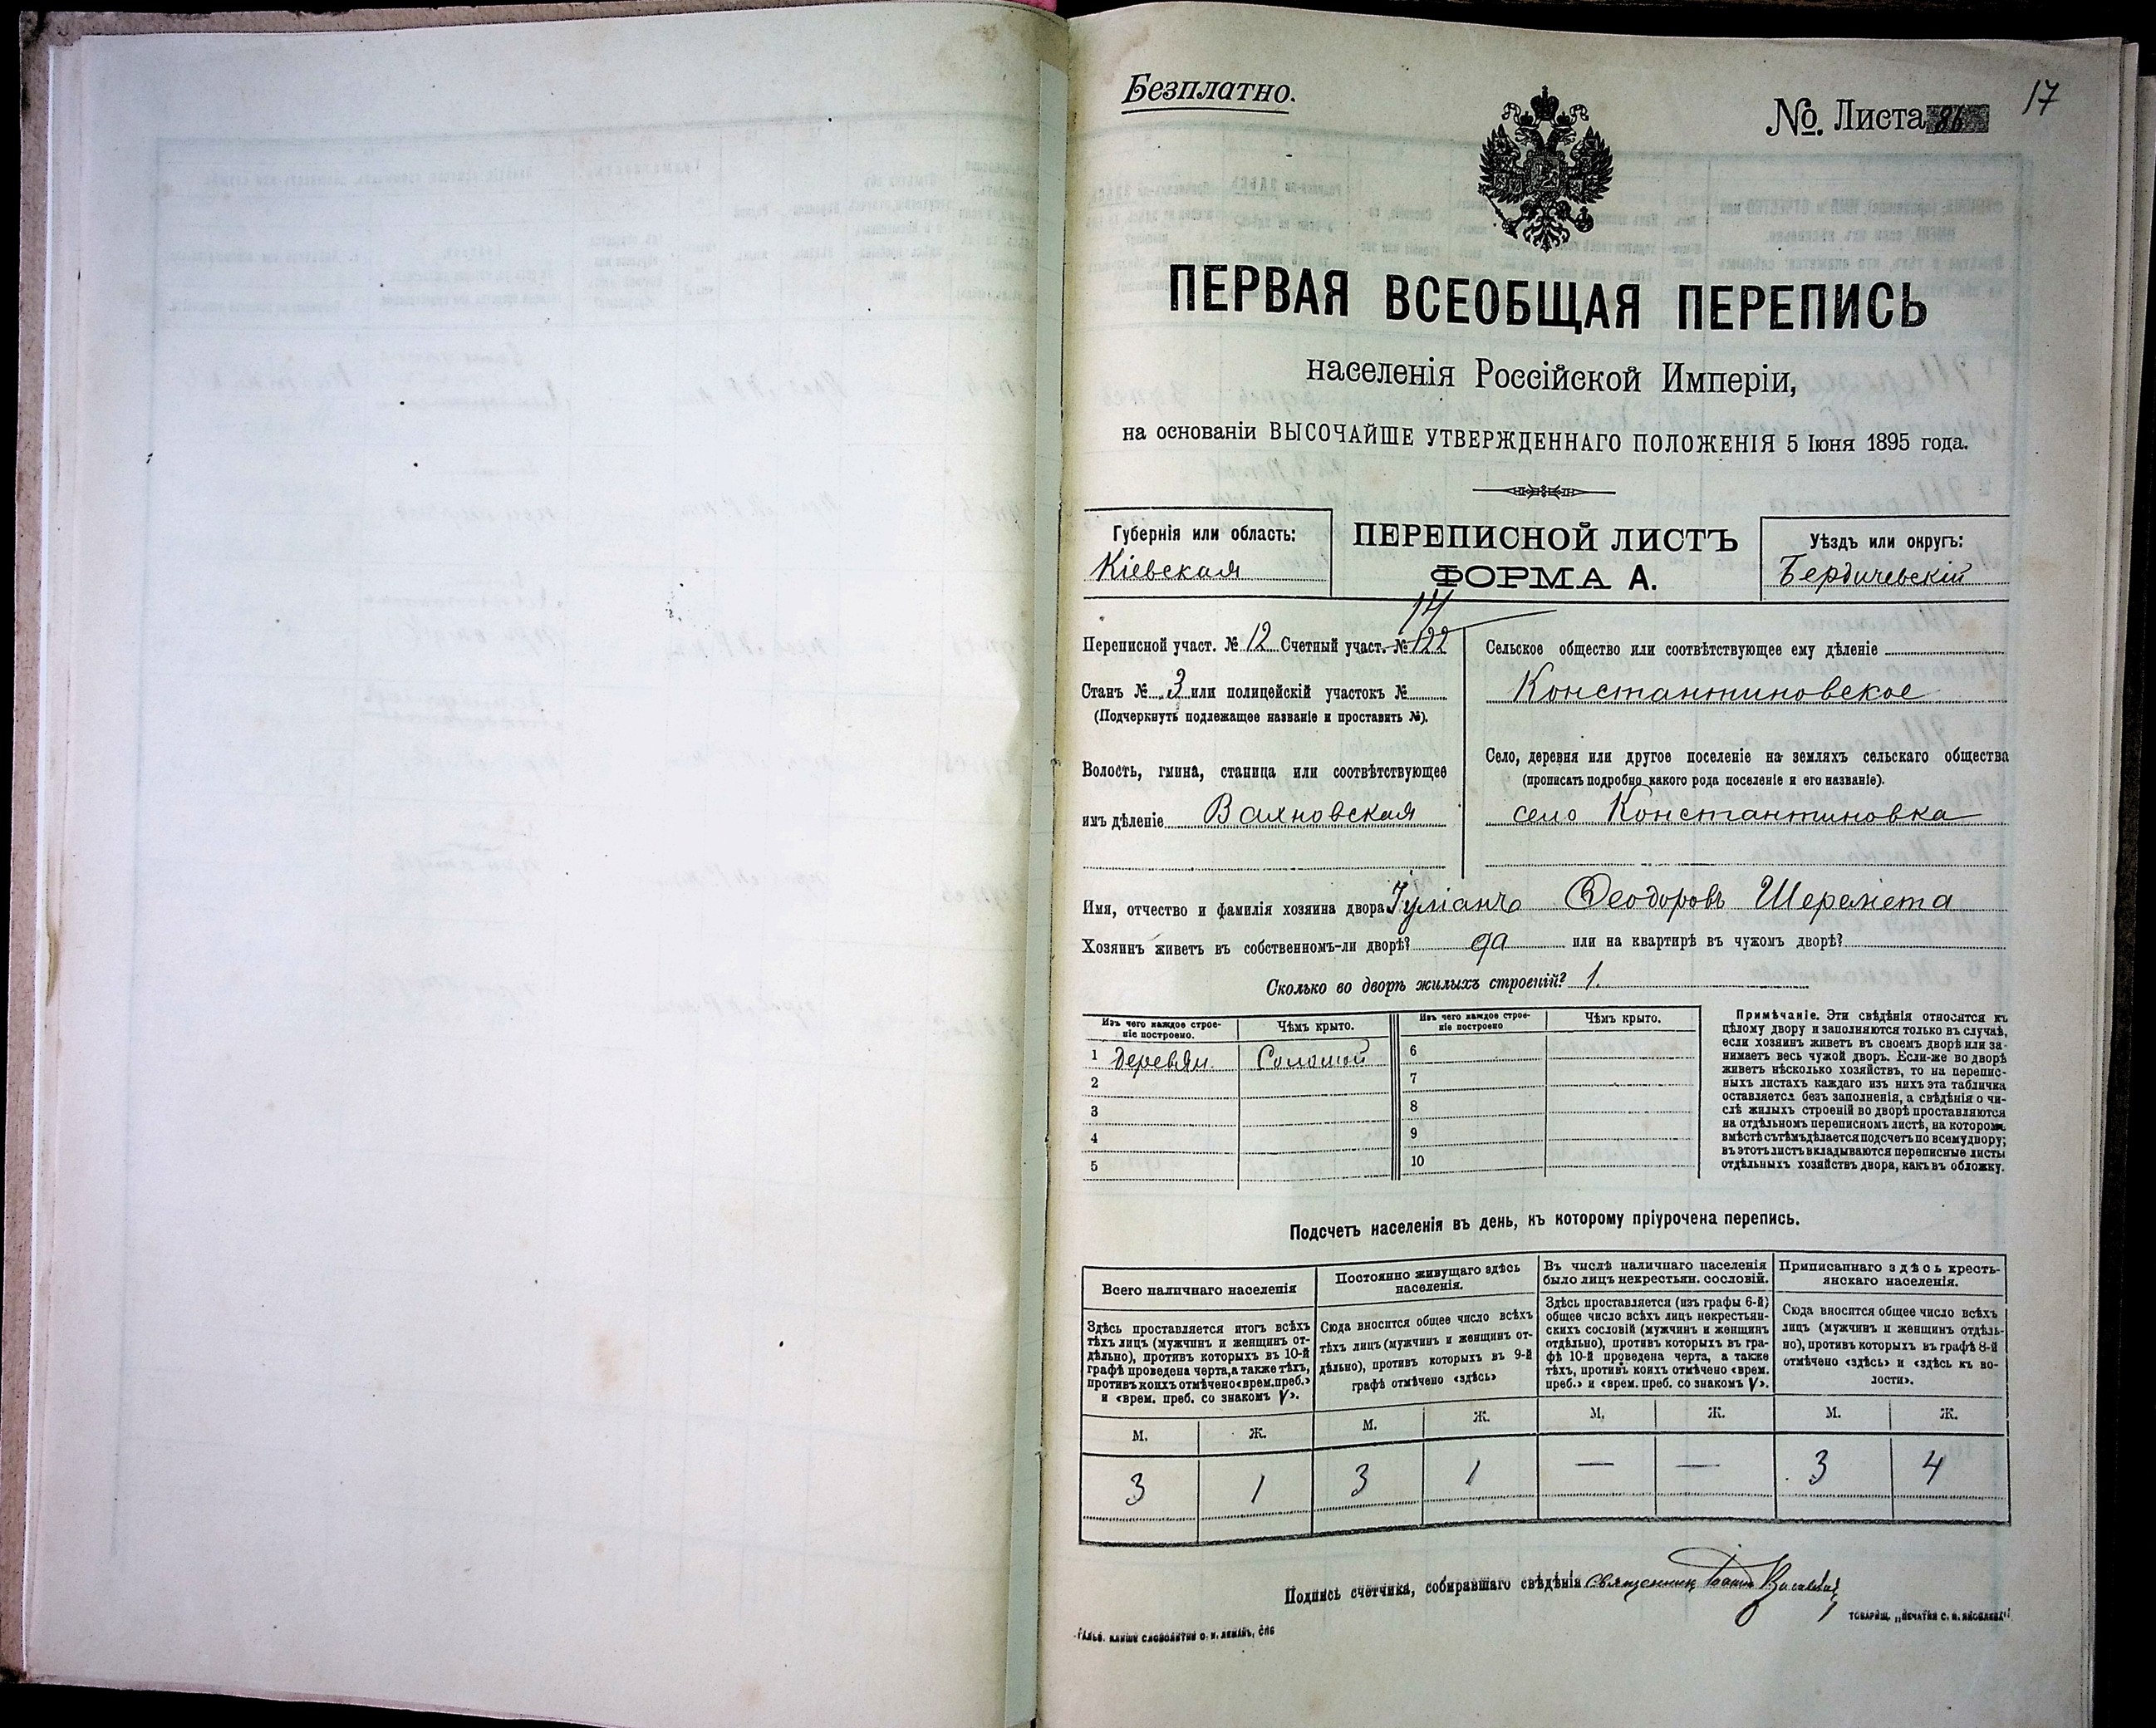 Безплатно.
№. Листа 86
17
ПЕРВАЯ ВСЕОБЩАЯ ПЕРЕПИСЬ
населенія Россійской Имперіи,
на основаніи ВЫСОЧАЙШЕ УТВЕРЖДЕННАГО ПОЛОЖЕНІЯ 5 Іюня 1895 года.
Губернія или область:
Кіевская
ПЕРЕПИСНОЙ ЛИСТЪ
ФОРМА А.
Уѣздъ или округъ:
Бердичевскій
14
Переписной участ. № 12 Счетный участ. № 122
Станъ № 3 или полицейскій участокъ №
(Подчеркнуть подлежащее названіе и проставить №).
Волость, гмина, станица или соотвѣтствующее
имъ дѣленіе Вахновская
Сельское общество или соотвѣтствующее ему дѣленіе
Константиновское
Село, деревня или другое поселеніе на земляхъ сельскаго общества
(прописать подробно какого рода поселеніе и его названіе).
село Константиновка
Имя, отчество и фамилія хозяина двора Іуліанъ Ѳеодоровъ Шеремета
Хозяинъ живетъ въ собственномъ-ли дворѣ? да или на квартирѣ въ чужомъ дворѣ?
Сколько во дворѣ жилыхъ строеній? 1.
Изъ чего каждое строе-
ніе построено.
Чѣмъ крыто.
Изъ чего каждое строе-
ніе построено
Чѣмъ крыто.
1 деревян. Соломой
2
3
4
5
6
7
8
9
10
Примѣчаніе. Эти свѣдѣнія относятся къ
цѣлому двору и заполняются только въ случаѣ,
если хозяинъ живетъ въ своемъ дворѣ или за-
нимаетъ весь чужой дворъ. Если-же во дворѣ
живетъ нѣсколько хозяйствъ, то на перепис-
ныхъ листахъ каждаго изъ нихъ эта табличка
оставляется безъ заполненія, а свѣдѣнія о чи-
слѣ жилыхъ строеній во дворѣ проставляются
на отдѣльномъ переписномъ листѣ, на которомъ
вмѣстѣ съ тѣмъ дѣлается подсчетъ по всему двору;
въ этотъ листъ вкладываются переписные листы
отдѣльныхъ хозяйствъ двора, какъ въ обложку.
Подсчетъ населенія въ день, къ которому пріурочена перепись.
Всего наличнаго населенія
Здѣсь проставляется итогъ всѣхъ
тѣхъ лицъ (мужчинъ и женщинъ от-
дѣльно), противъ которыхъ въ 10-й
графѣ проведена черта, а также тѣхъ,
противъ коихъ отмѣчено «врем. преб.»
и «врем. преб. со знакомъ V».
Постоянно живущаго здѣсь
населенія.
Сюда вносится общее число всѣхъ
тѣхъ лицъ (мужчинъ и женщинъ от-
дѣльно), противъ которыхъ въ 9-й
графѣ отмѣчено «здѣсь»
Въ числѣ наличнаго населенія
было лицъ некрестьян. сословій.
Здѣсь проставляется (изъ графы 6-й)
общее число всѣхъ лицъ некрестьян-
скихъ сословій (мужчинъ и женщинъ
отдѣльно), противъ которыхъ въ гра-
фѣ 10-й проведена черта, а также
тѣхъ, противъ коихъ отмѣчено «врем.
преб.» и «врем. преб. со знакомъ V».
Приписаннаго здѣсь кресть-
янскаго населенія.
Сюда вносится общее число всѣхъ
лицъ (мужчинъ и женщинъ отдѣль-
но), противъ которыхъ въ графѣ 8-й
отмѣчено «здѣсь» и «здѣсь къ во-
лости».
М. Ж. М. Ж. М. Ж. М. Ж.
3 1 3 1 — — 3 4
Подпись счетчика, собиравшаго свѣдѣнія священник
ТОВАРИЩ. „ПЕЧАТНЯ С. П. ЯКОВЛЕВА“
ГАЛЬВ. КЛИШЕ СЛОВОЛИТНИ О. И. ЛЕМАНЪ, СПБ